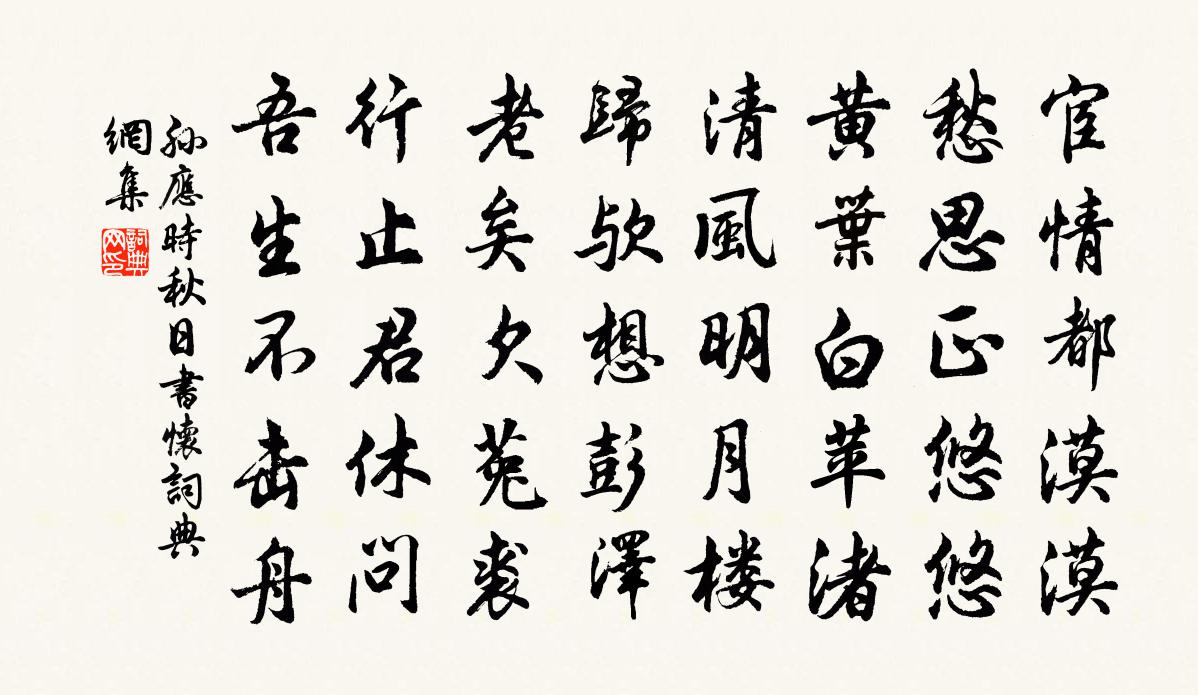 宦情都漠漠
愁思正悠悠
黄葉白苹渚
清風明月楼
歸欤想彭澤
老矣欠菟裘
行止君休问
吾生不击舟
孙應時秋日書懷詞典
網集
詞典
网印